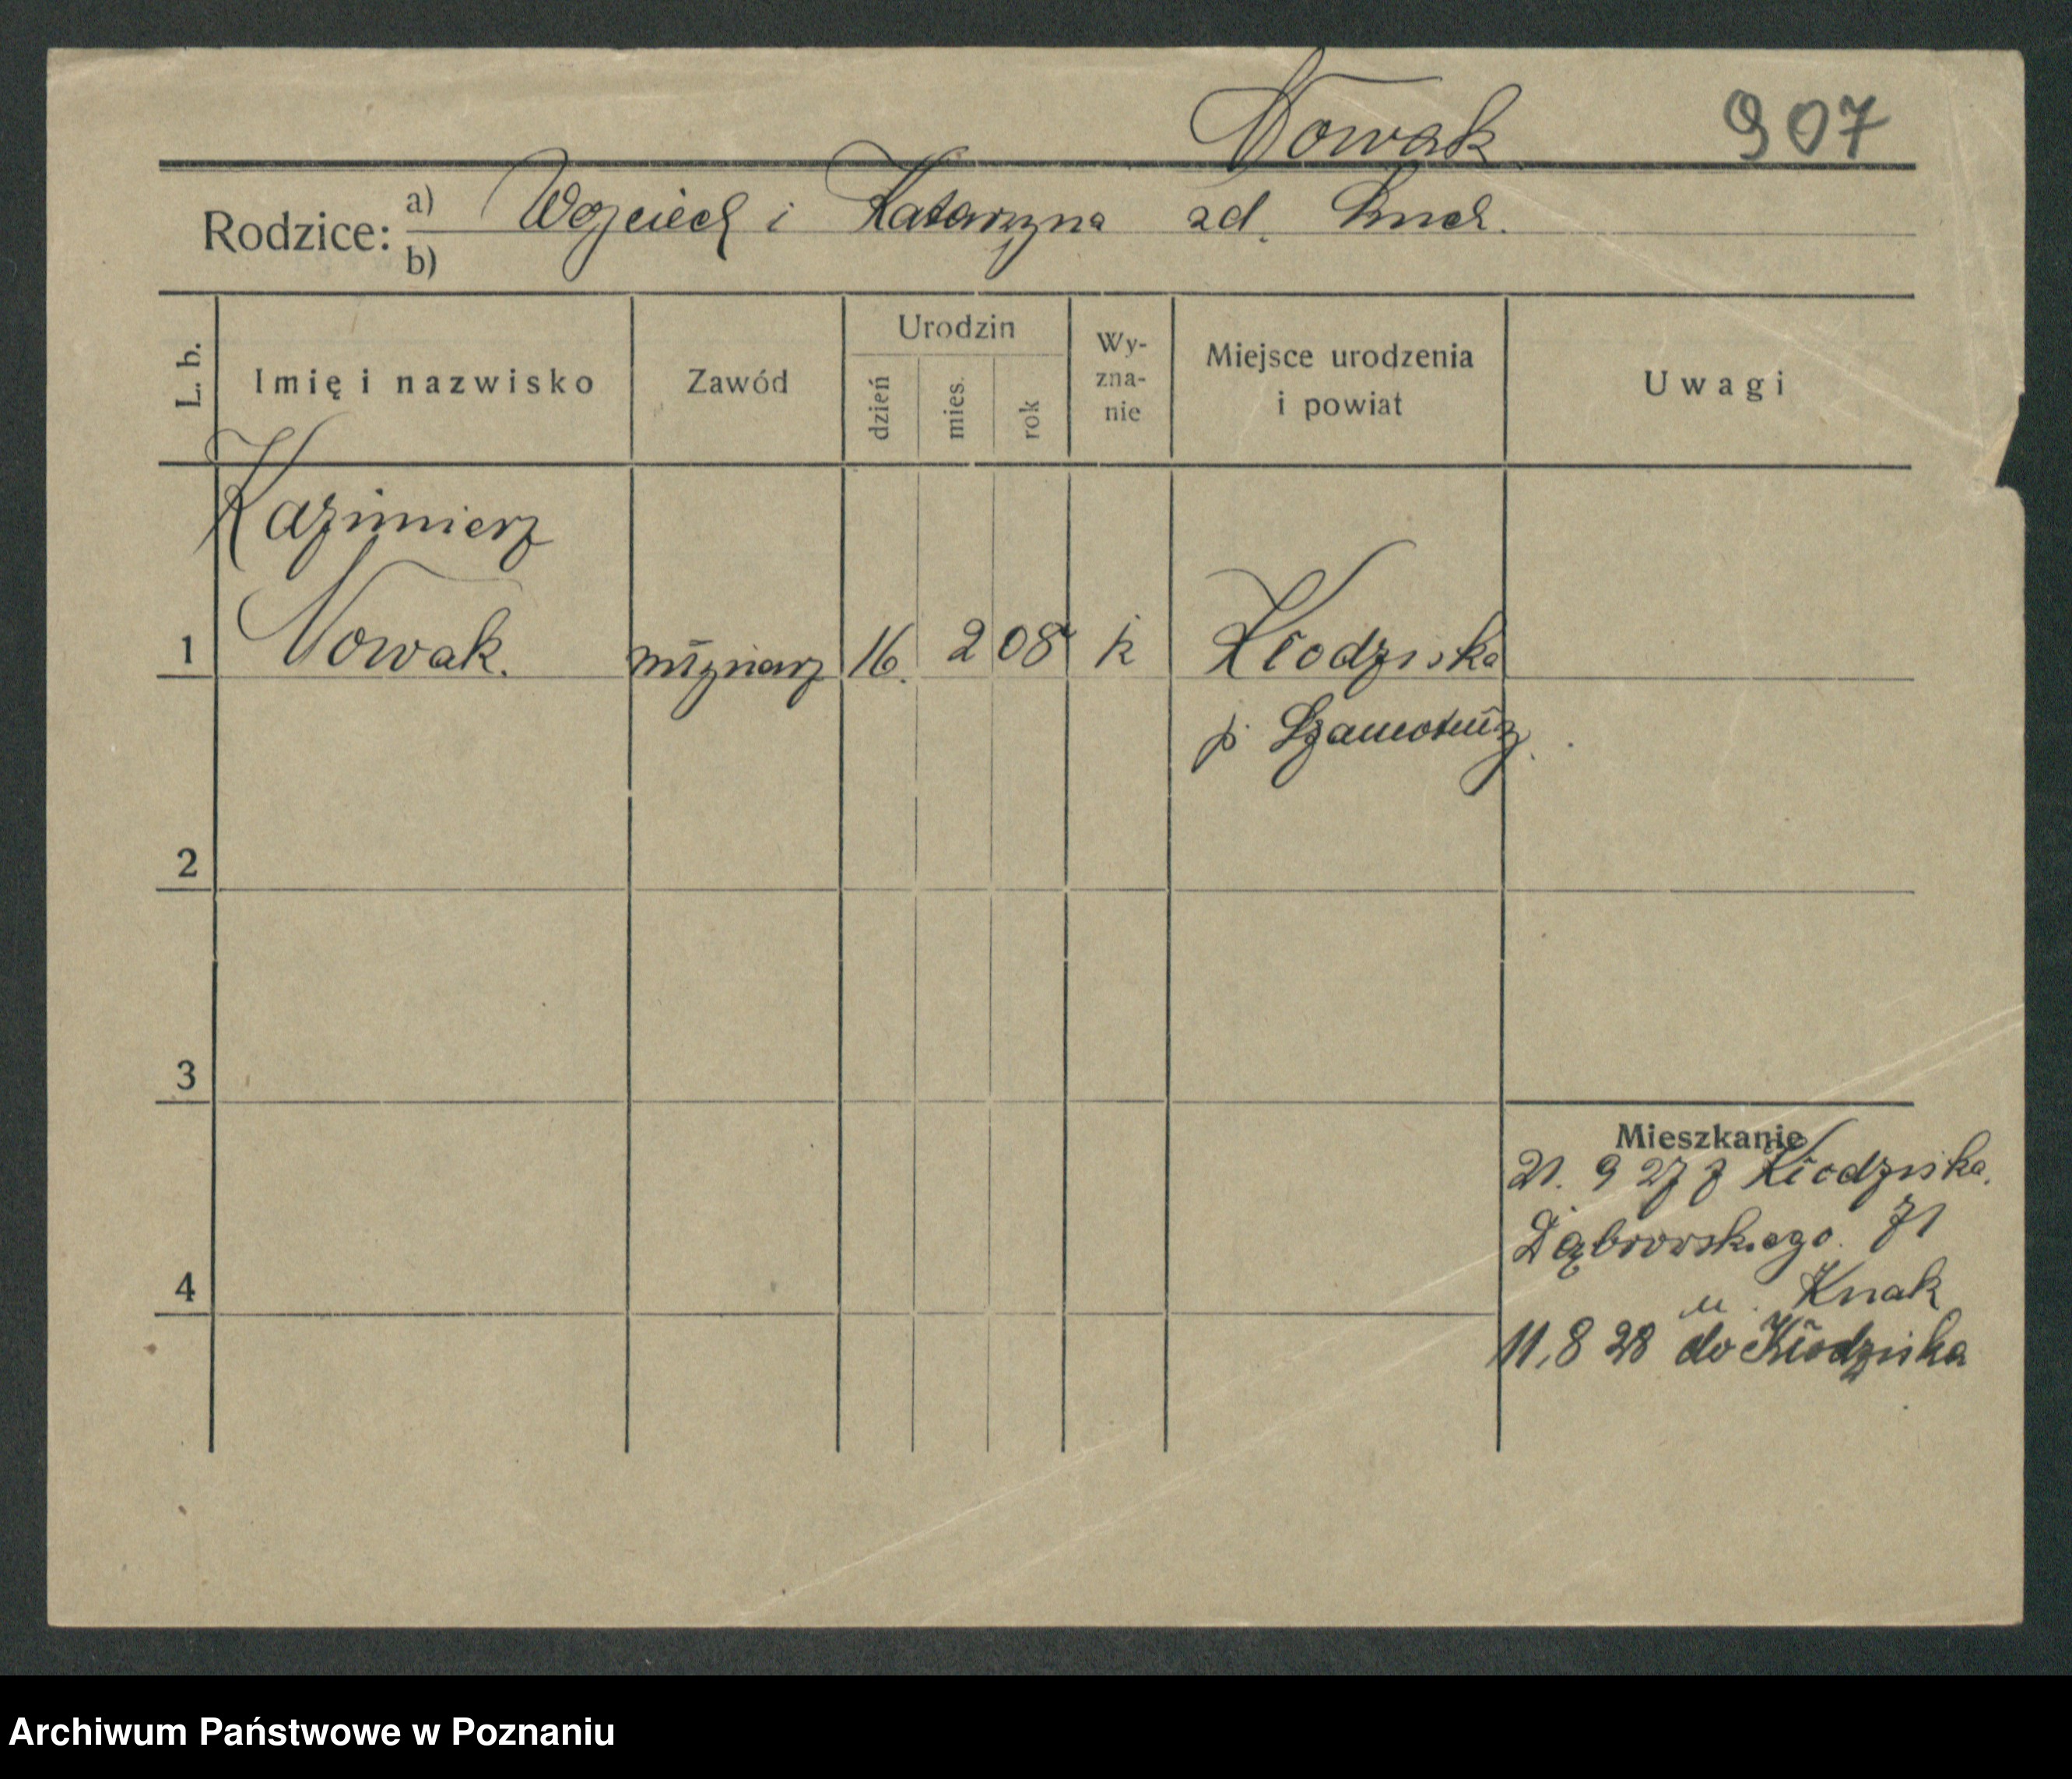 Nowak 907
Rodzice: a) Wojciech i Katarzyna zd.
b)
L. b. Imię i nazwisko Zawód Urodzin dzień mies. rok Wy-zna-nie Miejsce urodzenia i powiat Uwagi
Kazimierz
1 Nowak. młynarz 16. 2 08 k Kłodziska
p. Szamotuły.
2
3
Mieszkanie
21. 9 27 z Kłodziska.
Dąbrowskiego. 71
4 u. Knak
11,8 28 do Kłodziska
Archiwum Państwowe w Poznaniu